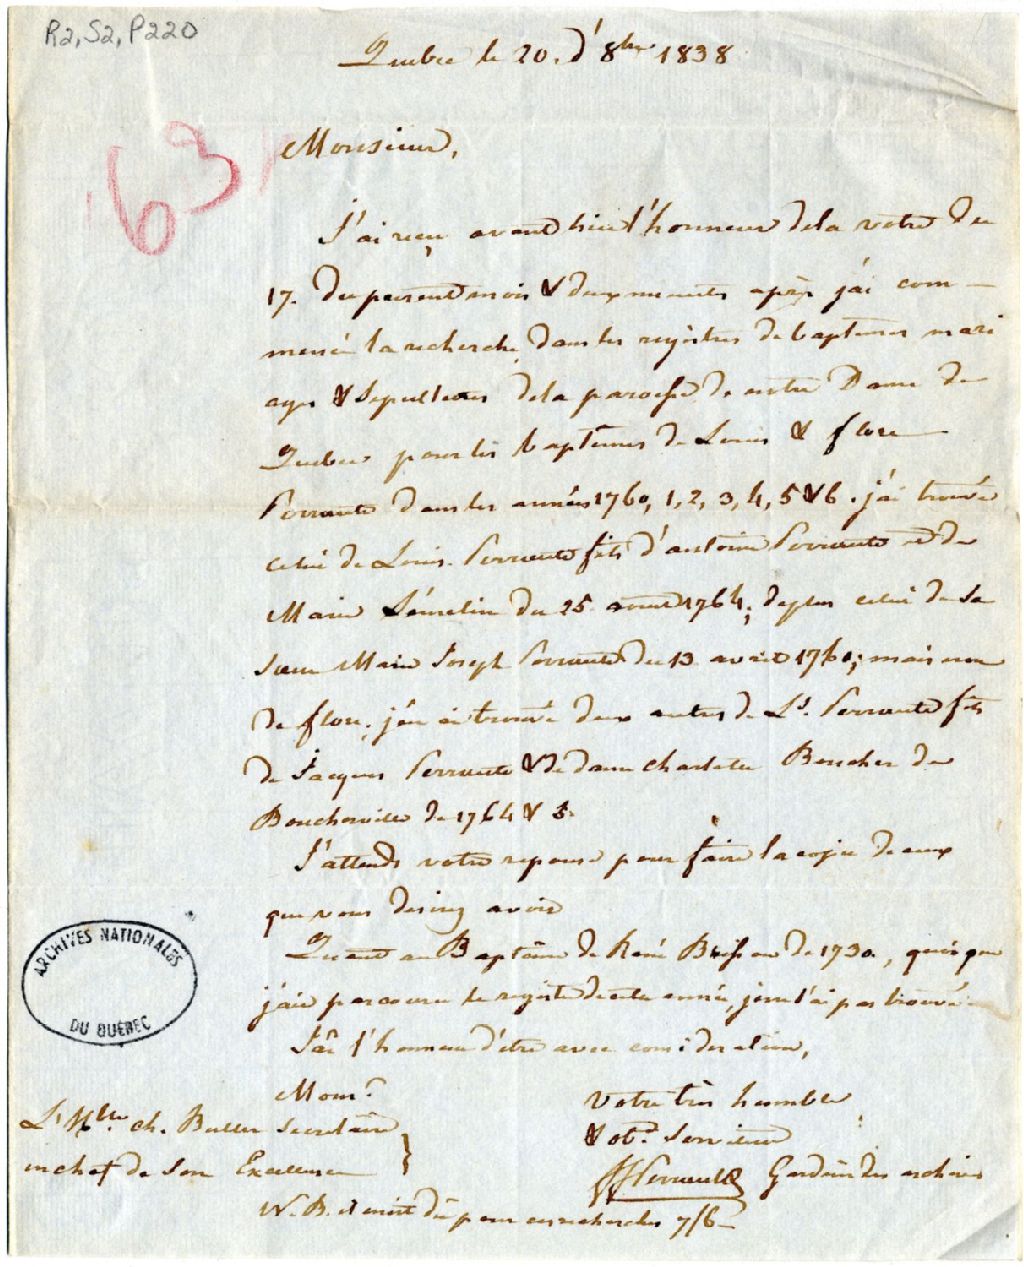 R2, S2, P220
Quebec le 20. d' 8bre 1838
63
Monsieur,
J'ai reçu avant hier l'honneur de la votre du
17. du present mois & deux minutes après j'ai com-
mencé la recherche dans les registres de baptemes mari
ages & sepultures de la paroisse de notre Dame de
Quebec pour les baptemes de Louis & flore
Perrault dans les années 1760, 1, 2, 3, 4, 5 & 6. j'ai trouvé
celui de Louis Perrault fils d'antoine Perrault et de
Marie du 25. aout 1764, de plus celui de sa
sœur Marie Joseph Perrault du 13 avril 1760; mais non
de flore. j'en ai trouvé deux autres de Ls. Perrault fils
de Jacques Perrault & de dame charlotte Boucher de
Boucherville de 1764 & 5.
J'attends votre reponse pour faire la copie de ceux
que vous desirez avoir
Quant au Baptême de René de 1730, quoique
j'aie parcouru le registre de cette année, je ne l'ai pas trouvé.
J'ai l'honneur d'être avec consideration,
Monsr.
Votre très humble
& obt. serviteur
JF Perrault Gardien des archives
L'Hble ch. Buller Secretaire
en chef de Son Excellence
N. B. il m'est dû pour ces recherches 7/6
ARCHIVES NATIONALES
DU QUÉBEC